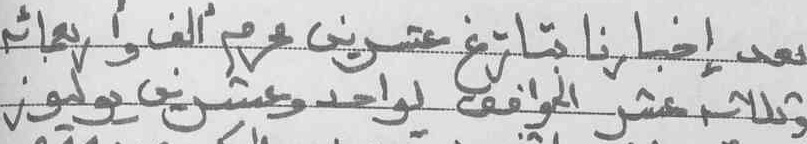 بعد إخبارنا بتاريخ عشرين محرم ألف وأربعمائة
وثلاثة عشر الموافق لواحد وعشرين يوليوز